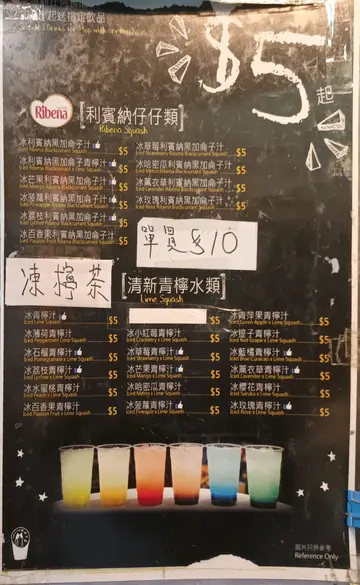 起送指定飲品
$5起
Ribena
[利賓納仔仔類]
Ribena Squash
冰利賓納黑加侖子汁 $5
Iced Ribena Blackcurrant Squash
冰利賓納黑加侖子青檸汁 $5
冰芒果利賓納黑加侖子汁 $5
Iced Mango Ribena Blackcurrant Squash
冰菠蘿利賓納黑加侖子汁 $5
Iced Pineapple Ribena Blackcurrant Squash
冰荔枝利賓納黑加侖子汁 $5
Iced Lychee Ribena Blackcurrant Squash
冰百香果利賓納黑加侖子汁 $5
Iced Passion Fruit Ribena Blackcurrant Squash
冰草莓利賓納黑加侖子汁 $5
Iced Strawberry Ribena Blackcurrant Squash
冰哈密瓜利賓納黑加侖子汁 $5
Iced Melon Ribena Blackcurrant Squash
冰薰衣草利賓納黑加侖子汁 $5
Iced Lavender Ribena Blackcurrant Squash
冰玫瑰利賓納黑加侖子汁 $5
Iced Rose Ribena Blackcurrant Squash
單買$10
凍檸茶
[清新青檸水類]
Lime Squash
冰青檸汁 $5
Iced Lime Squash
冰薄荷青檸汁 $5
Iced Peppermint Lime Squash
冰石榴青檸汁 $5
Iced Pomegranate x Lime Squash
冰荔枝青檸汁 $5
Iced Lychee x Lime Squash
冰水蜜桃青檸汁 $5
Iced Peach x Lime Squash
冰百香果青檸汁 $5
Iced Passion Fruit x Lime Squash
冰小紅莓青檸汁 $5
Iced Cranberry x Lime Squash
冰草莓青檸汁 $5
Iced Strawberry x Lime Squash
冰芒果青檸汁 $5
Iced Mango x Lime Squash
冰哈密瓜青檸汁 $5
Iced Melon x Lime Squash
冰菠蘿青檸汁 $5
Iced Pineapple x Lime Squash
冰青蘋果青檸汁 $5
Iced Green Apple x Lime Squash
冰提子青檸汁 $5
Iced Red Grape x Lime Squash
冰藍橘青檸汁 $5
Iced Blue Curacao x Lime Squash
冰薰衣草青檸汁 $5
Iced Lavender x Lime Squash
冰櫻花青檸汁 $5
Iced Sakura x Lime Squash
冰玫瑰青檸汁 $5
Iced Rose x Lime Squash
圖片只供參考
Reference Only